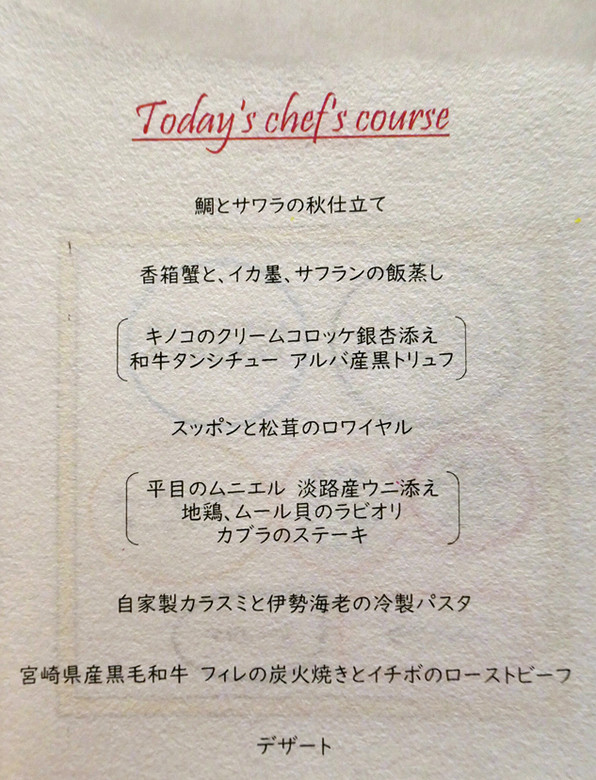 Today's chef's course
鯛とサワラの秋仕立て
香箱蟹と、イカ墨、サフランの飯蒸し
キノコのクリームコロッケ銀杏添え
和牛タンシチュー アルバ産黒トリュフ
スッポンと松茸のロワイヤル
平目のムニエル 淡路産ウニ添え
地鶏、ムール貝のラビオリ
カブラのステーキ
自家製カラスミと伊勢海老の冷製パスタ
宮崎県産黒毛和牛 フィレの炭火焼きとイチボのローストビーフ
デザート